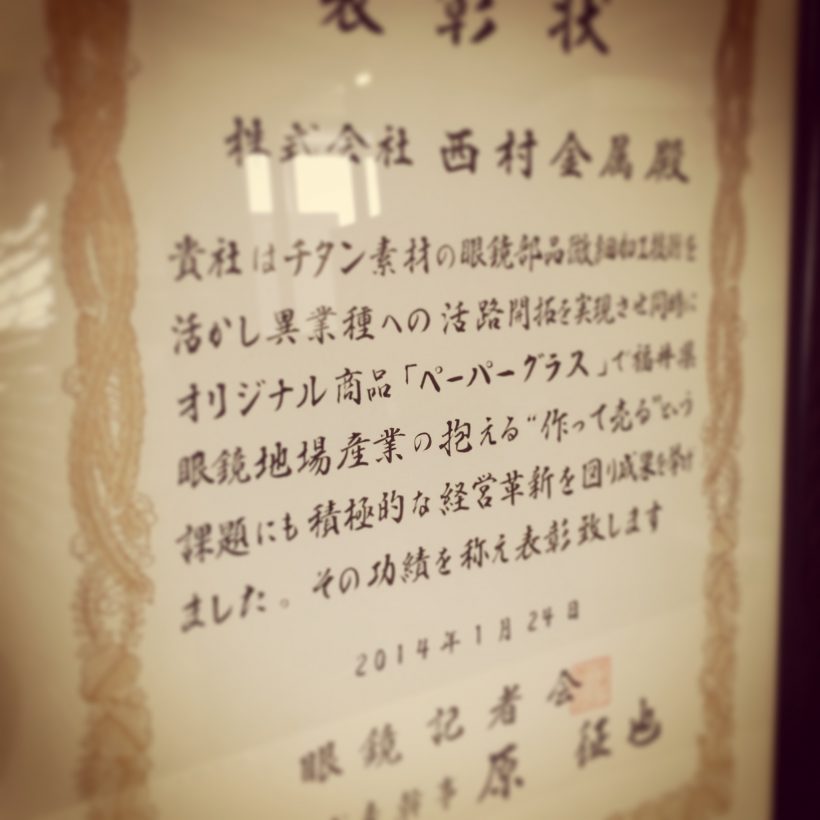 表彰状
株式会社 西村金属殿
貴社はチタン素材の眼鏡部品微細加工技術を
活かし異業種への活路開拓を実現させ同時に
オリジナル商品「ペーパーグラス」で福井県
眼鏡地場産業の抱える“作って売る”という
課題にも積極的な経営革新を図り成果を挙げ
ました。その功績を称え表彰致します
2014年1月24日
眼鏡記者会
幹事 原 征也